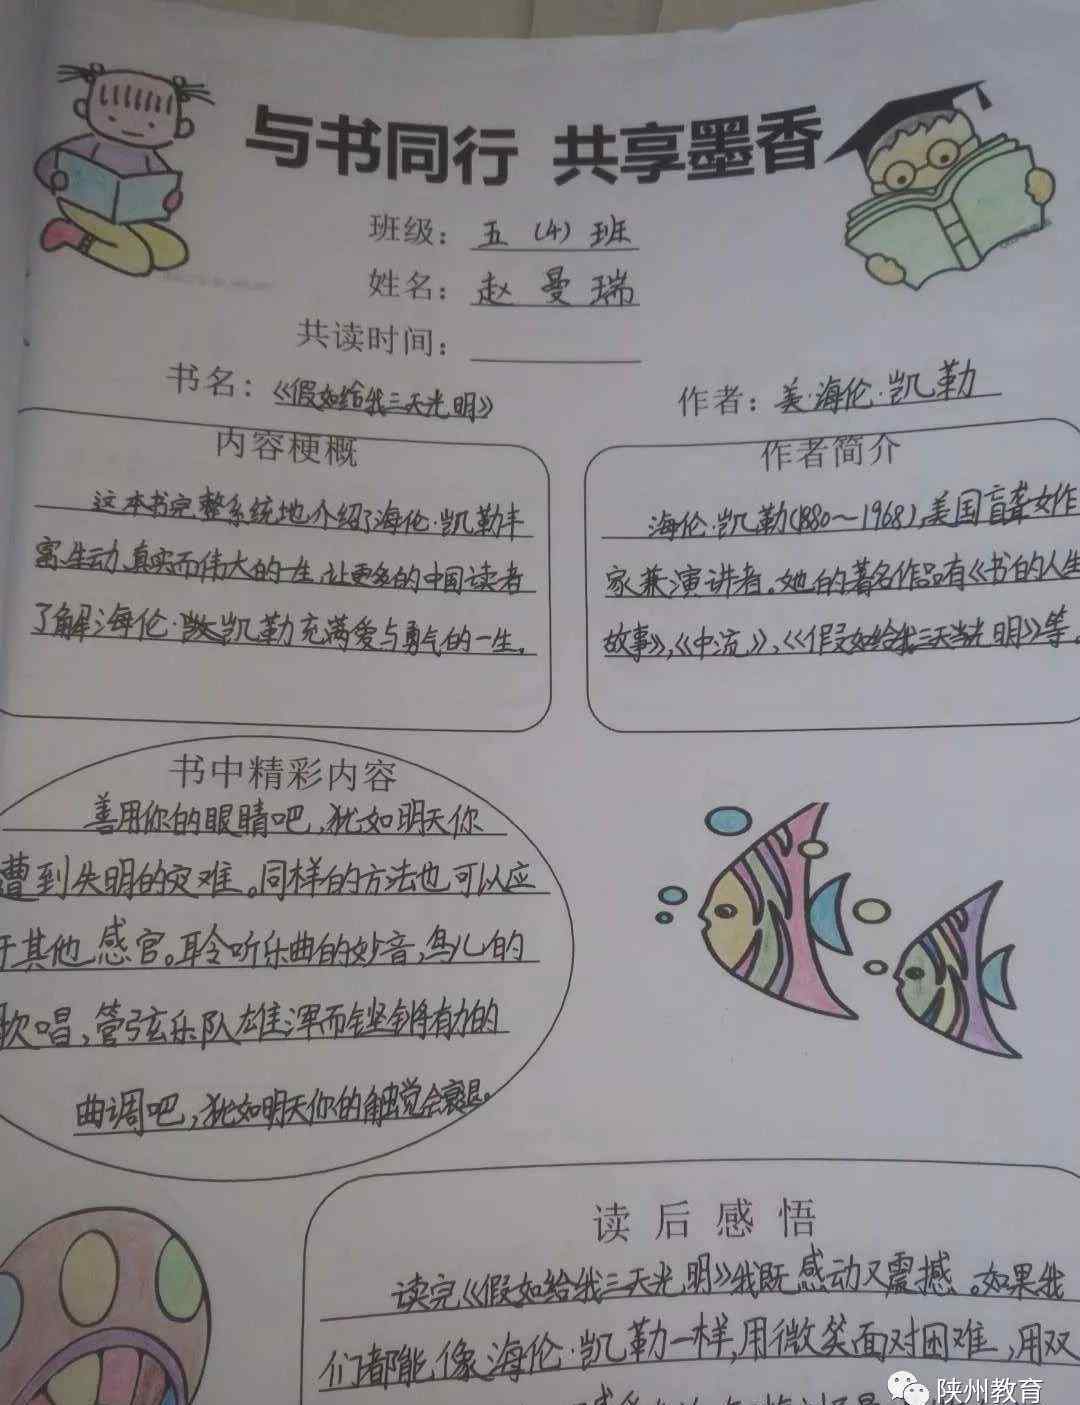 与书同行 共享墨香
班级：五（4）班
姓名：赵曼瑞
共读时间：
书名：《假如给我三天光明》
作者：美·海伦·凯勒
内容梗概
这本书完整系统地介绍了海伦·凯勒丰
富、生动、真实而伟大的一生，让更多的中国读者
了解海伦·凯勒充满爱与勇气的一生。
作者简介
海伦·凯勒(1880～1968)，美国盲聋女作
家兼演讲者。她的著名作品有《书的人生
故事》，《中流》、《假如给我三天光明》等。
书中精彩内容
善用你的眼睛吧，犹如明天你
遭到失明的灾难。同样的方法也可以应
于其他感官。聆听乐曲的妙音，鸟儿的
歌唱，管弦乐队雄浑而铿锵有力的
曲调吧，犹如明天你的触觉会衰退。
读后感悟
读完《假如给我三天光明》我既感动又震撼。如果我
们都能像海伦·凯勒一样，用微笑面对困难，用双
陕州教育